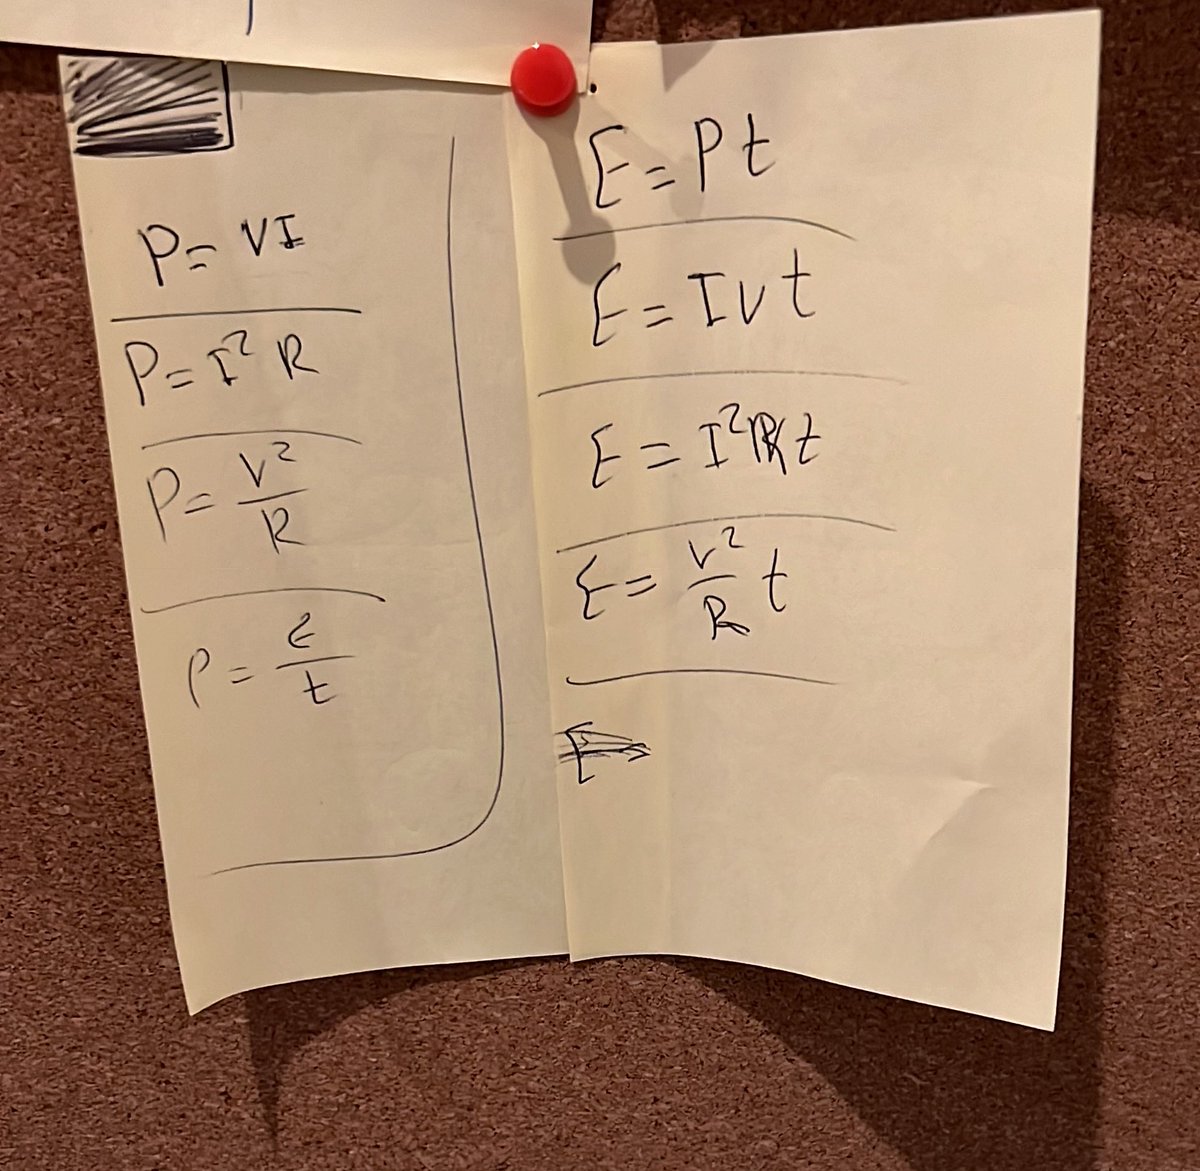 P = VI
P = I² R
P = V²/R
P = E/t
E = Pt
E = IVt
E = I²Rt
E = V²/R t